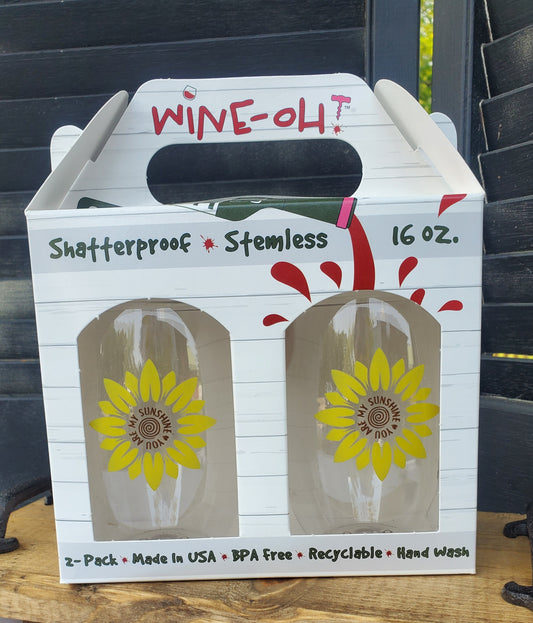 WINE-OH! TM
Shatterproof * Stemless 16 OZ.
YOU ARE MY SUNSHINE
YOU ARE MY SUNSHINE
2-Pack * Made In USA * BPA Free * Recyclable * Hand Wash